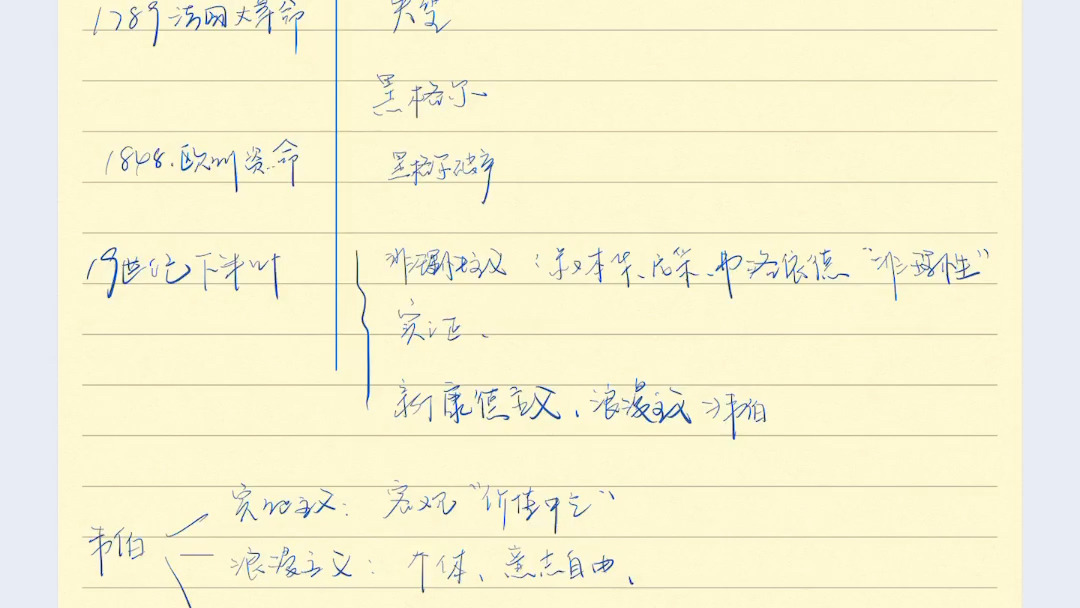 1789 法国大革命
黑格尔
1848.欧州 命
黑格尔破产
19世纪下半叶
非理性主义：叔本华、尼采、弗洛依德“非理性”
实证、
新康德主义、浪漫主义→韦伯
韦伯
实证主义：客观“价值中立”
浪漫主义：个体、意志自由、